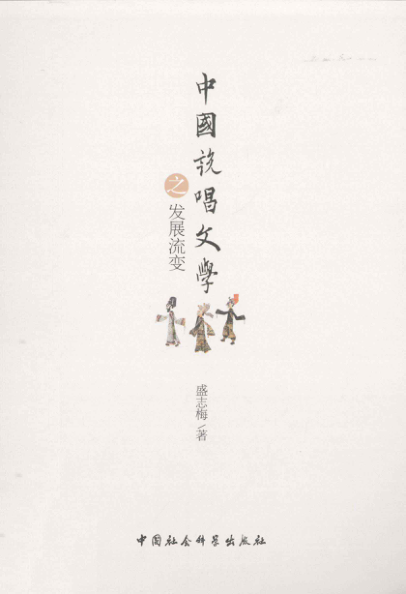 中國説唱文學
之发展流变
盛志梅/著
中国社会科学出版社